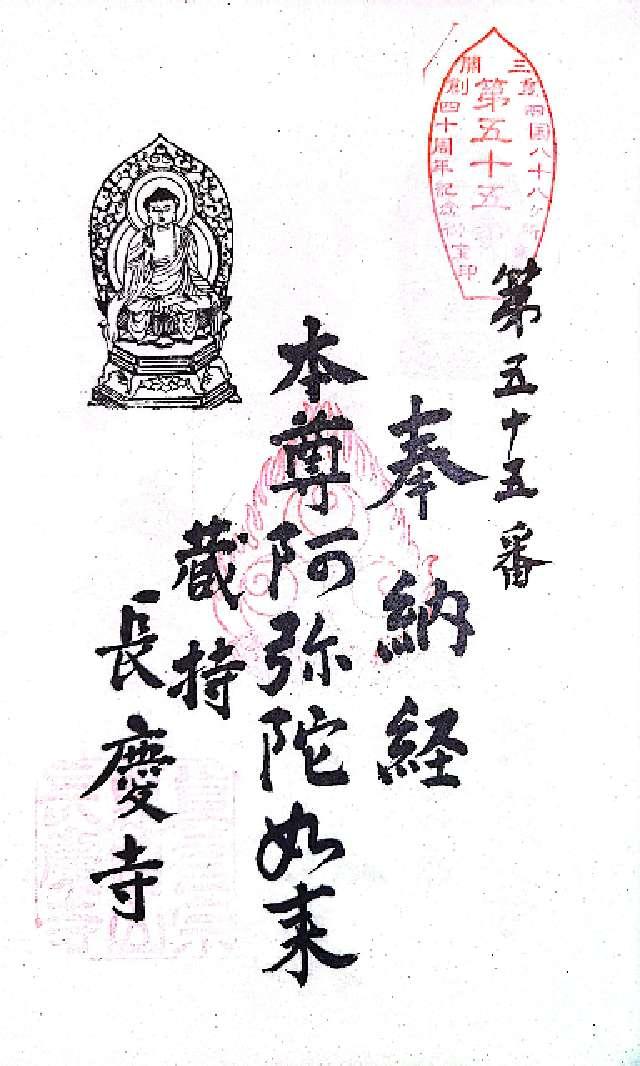 三島両国八十八ヶ所
第五十五番
開創四十周年記念宝印
第五十五番
奉納経
本尊阿弥陀如来
蔵持
長慶寺